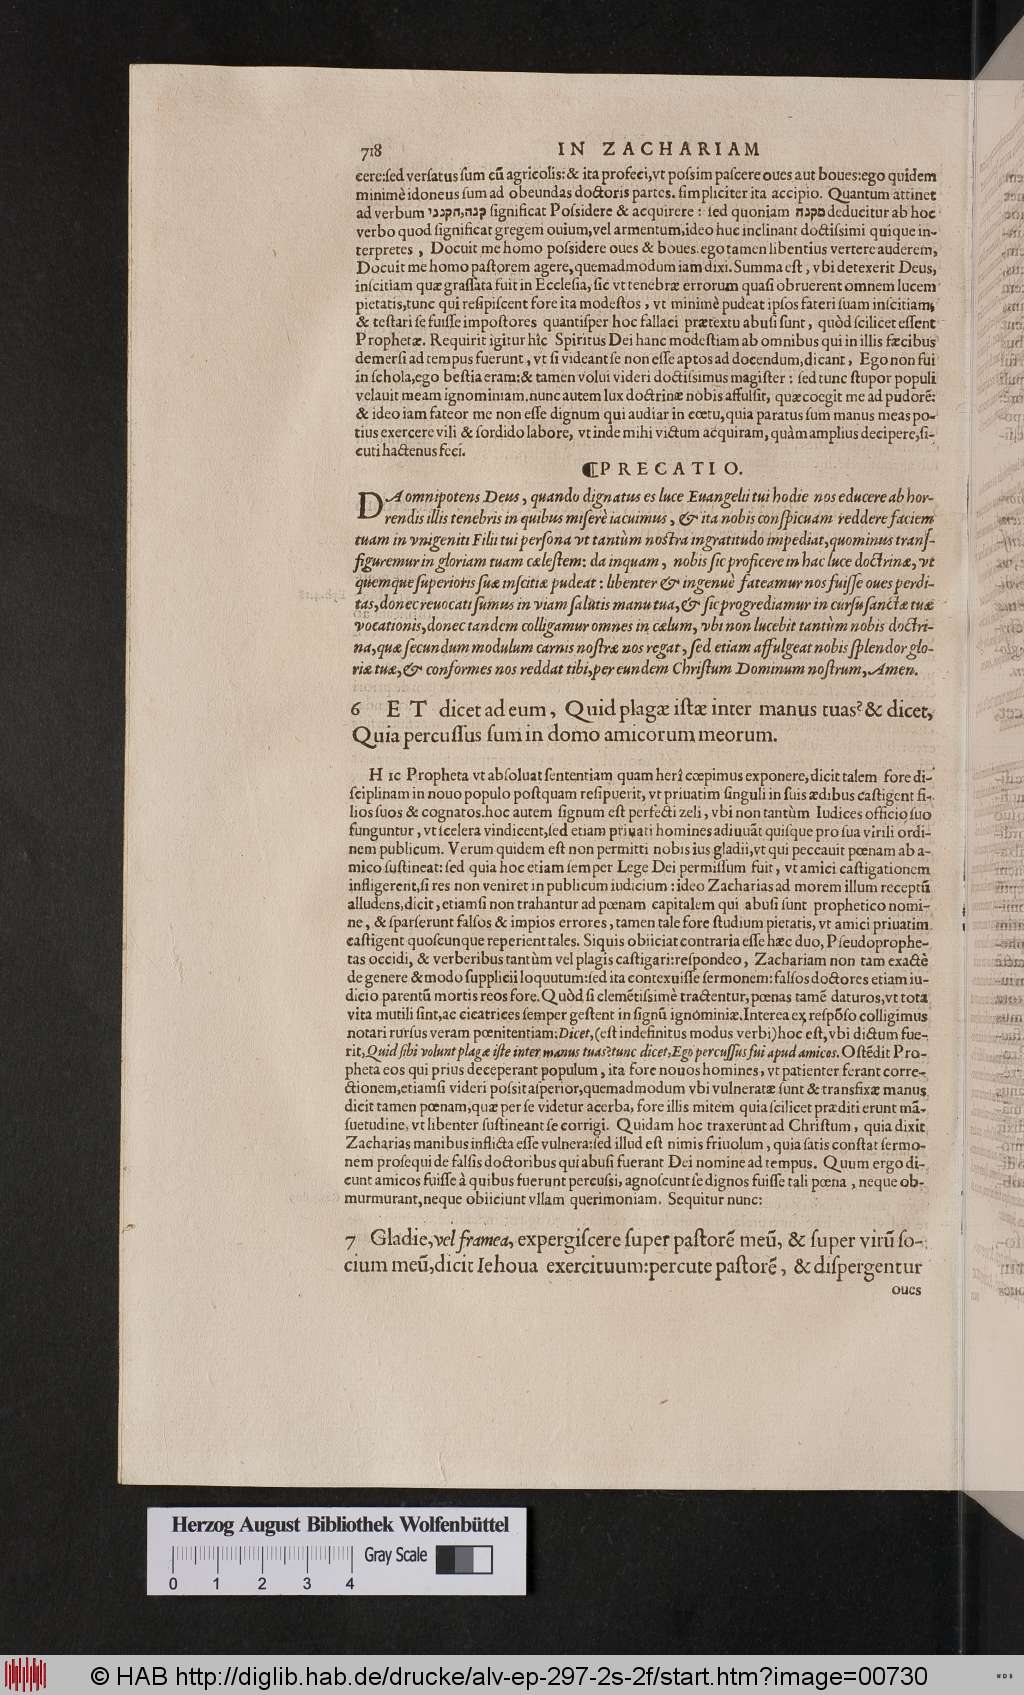 718 IN ZACHARIAM
cere:ſed verſatus ſum cū agricolis:& ita profeci,vt poſsim paſcere oues aut boues:ego quidem
minimè idoneus ſum ad obeundas doctoris partes. ſimpliciter ita accipio. Quantum attinet
ad verbum קנה,הקנני ſignificat Poſsidere & acquirere : ſed quoniam מקנה deducitur ab hoc
verbo quod ſignificat gregem ouium,vel armentum,ideo huc inclinant doctiſsimi quique in-
terpretes , Docuit me homo poſsidere oues & boues. ego tamen libentius vertere auderem,
Docuit me homo paſtorem agere,quemadmodum iam dixi. Summa eſt , vbi detexerit Deus,
inſcitiam quæ graſſata fuit in Eccleſia, ſic vt tenebræ errorum quaſi obruerent omnem lucem
pietatis,tunc qui reſipiſcent fore ita modeſtos , vt minimè pudeat ipſos fateri ſuam inſcitiam,
& teſtari ſe fuiſſe impoſtores quantiſper hoc fallaci prætextu abuſi ſunt , quòd ſcilicet eſſent
Prophetæ. Requirit igitur hîc Spiritus Dei hanc modeſtiam ab omnibus qui in illis fæcibus
demerſi ad tempus fuerunt , vt ſi videant ſe non eſſe aptos ad docendum,dicant , Ego non fui
in ſchola,ego beſtia eram:& tamen volui videri doctiſsimus magiſter : ſed tunc ſtupor populi
velauit meam ignominiam.nunc autem lux doctrinæ nobis affulſit, quæ coegit me ad pudorē:
& ideo iam fateor me non eſſe dignum qui audiar in cœtu,quia paratus ſum manus meas po-
tius exercere vili & ſordido labore, vt inde mihi victum acquiram,quàm amplius decipere,ſi-
cuti hactenus feci.
¶PRECATIO.
DA omnipotens Deus, quando dignatus es luce Euangelii tui hodie nos educere ab hor-
rendis illis tenebris in quibus miſerè iacuimus, & ita nobis conſpicuam reddere faciem
tuam in vnigeniti Filii tui perſona vt tantùm noſtra ingratitudo impediat,quominus tranſ-
figuremur in gloriam tuam cæleſtem: da inquam, nobis ſic proficere in hac luce doctrinæ, vt
quemque ſuperioris ſuæ inſcitiæ pudeat : libenter & ingenuè fateamur nos fuiſſe oues perdi-
tas,donec reuocati ſumus in viam ſalutis manu tua,& ſic progrediamur in curſu ſanctæ tuæ
vocationis,donec tandem colligamur omnes in cælum, vbi non lucebit tantùm nobis doctri-
na,quæ ſecundum modulum carnis noſtræ nos regat, ſed etiam affulgeat nobis ſplendor glo-
riæ tuæ,& conformes nos reddat tibi,per eundem Chriſtum Dominum noſtrum, Amen.
6 ET dicet ad eum, Quid plagæ iſtæ inter manus tuas? & dicet,
Quia percuſſus ſum in domo amicorum meorum.
HIC Propheta vt abſoluat ſententiam quam heri cœpimus exponere,dicit talem fore di-
ſciplinam in nouo populo poſtquam reſipuerit, vt priuatim ſinguli in ſuis ædibus caſtigent fi-
lios ſuos & cognatos.hoc autem ſignum eſt perfecti zeli, vbi non tantùm Iudices officio ſuo
funguntur, vt ſcelera vindicent,ſed etiam priuati homines adiuuāt quiſque pro ſua virili ordi-
nem publicum. Verum quidem eſt non permitti nobis ius gladii,vt qui peccauit pœnam ab a-
mico ſuſtineat: ſed quia hoc etiam ſemper Lege Dei permiſſum fuit, vt amici caſtigationem
infligerent,ſi res non veniret in publicum iudicium : ideo Zacharias ad morem illum receptū
alludens,dicit , etiamſi non trahantur ad pœnam capitalem qui abuſi ſunt prophetico nomi-
ne, & ſparſerunt falſos & impios errores, tamen tale fore ſtudium pietatis, vt amici priuatim
caſtigent quoſcunque reperient tales. Siquis obiiciat contraria eſſe hæc duo, Pſeudoprophe-
tas occidi, & verberibus tantùm vel plagis caſtigari:reſpondeo, Zachariam non tam exactè
de genere & modo ſupplicii loquutum:ſed ita contexuiſſe ſermonem: falſos doctores etiam iu-
dicio parentū mortis reos fore. Quòd ſi clemētiſsimè tractentur, pœnas tamē daturos,vt tota
vita mutili ſint,ac cicatrices ſemper geſtent in ſignū ignominiæ. Interea ex reſpōſo colligimus
notari rurſus veram pœnitentiam.Dicet,(eſt indefinitus modus verbi) hoc eſt, vbi dictum fue-
rit,Quid ſibi volunt plagæ iſtæ inter manus tuas?tunc dicet,Ego percuſſus fui apud amicos. Oſtēdit Pro-
pheta eos qui prius deceperant populum, ita fore nouos homines, vt patienter ferant corre-
ctionem,etiamſi videri poſsit aſperior,quemadmodum vbi vulneratæ ſunt & transfixæ manus
dicit tamen pœnam,quæ per ſe videtur acerba, fore illis mitem quia ſcilicet præditi erunt mā-
ſuetudine, vt libenter ſuſtineant ſe corrigi. Quidam hoc traxerunt ad Chriſtum, quia dixit
Zacharias manibus inflicta eſſe vulnera:ſed illud eſt nimis friuolum, quia ſatis conſtat ſermo-
nem proſequi de falſis doctoribus qui abuſi fuerant Dei nomine ad tempus. Quum ergo di-
cunt amicos fuiſſe à quibus fuerunt percuſsi, agnoſcunt ſe dignos fuiſſe tali pœna, neque ob-
murmurant,neque obiiciunt vllam querimoniam. Sequitur nunc:
7 Gladie,vel framea, expergiſcere ſuper paſtorē meū, & ſuper virū ſo-
cium meū,dicit Iehoua exercituum:percute paſtorē, & diſpergentur
oues
Herzog August Bibliothek Wolfenbüttel
Gray Scale
0 1 2 3 4
© HAB http://diglib.hab.de/drucke/alv-ep-297-2s-2f/start.htm?image=00730